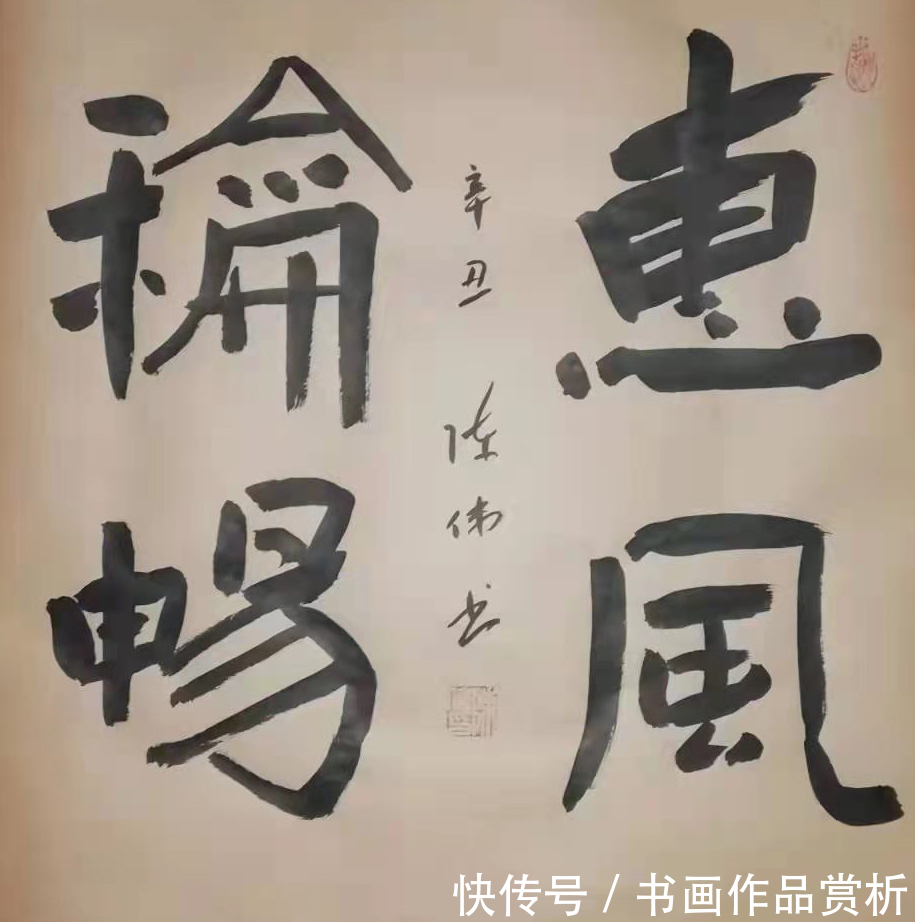 惠風
龢暢
辛丑 陈伟书
快传号 / 书画作品赏析